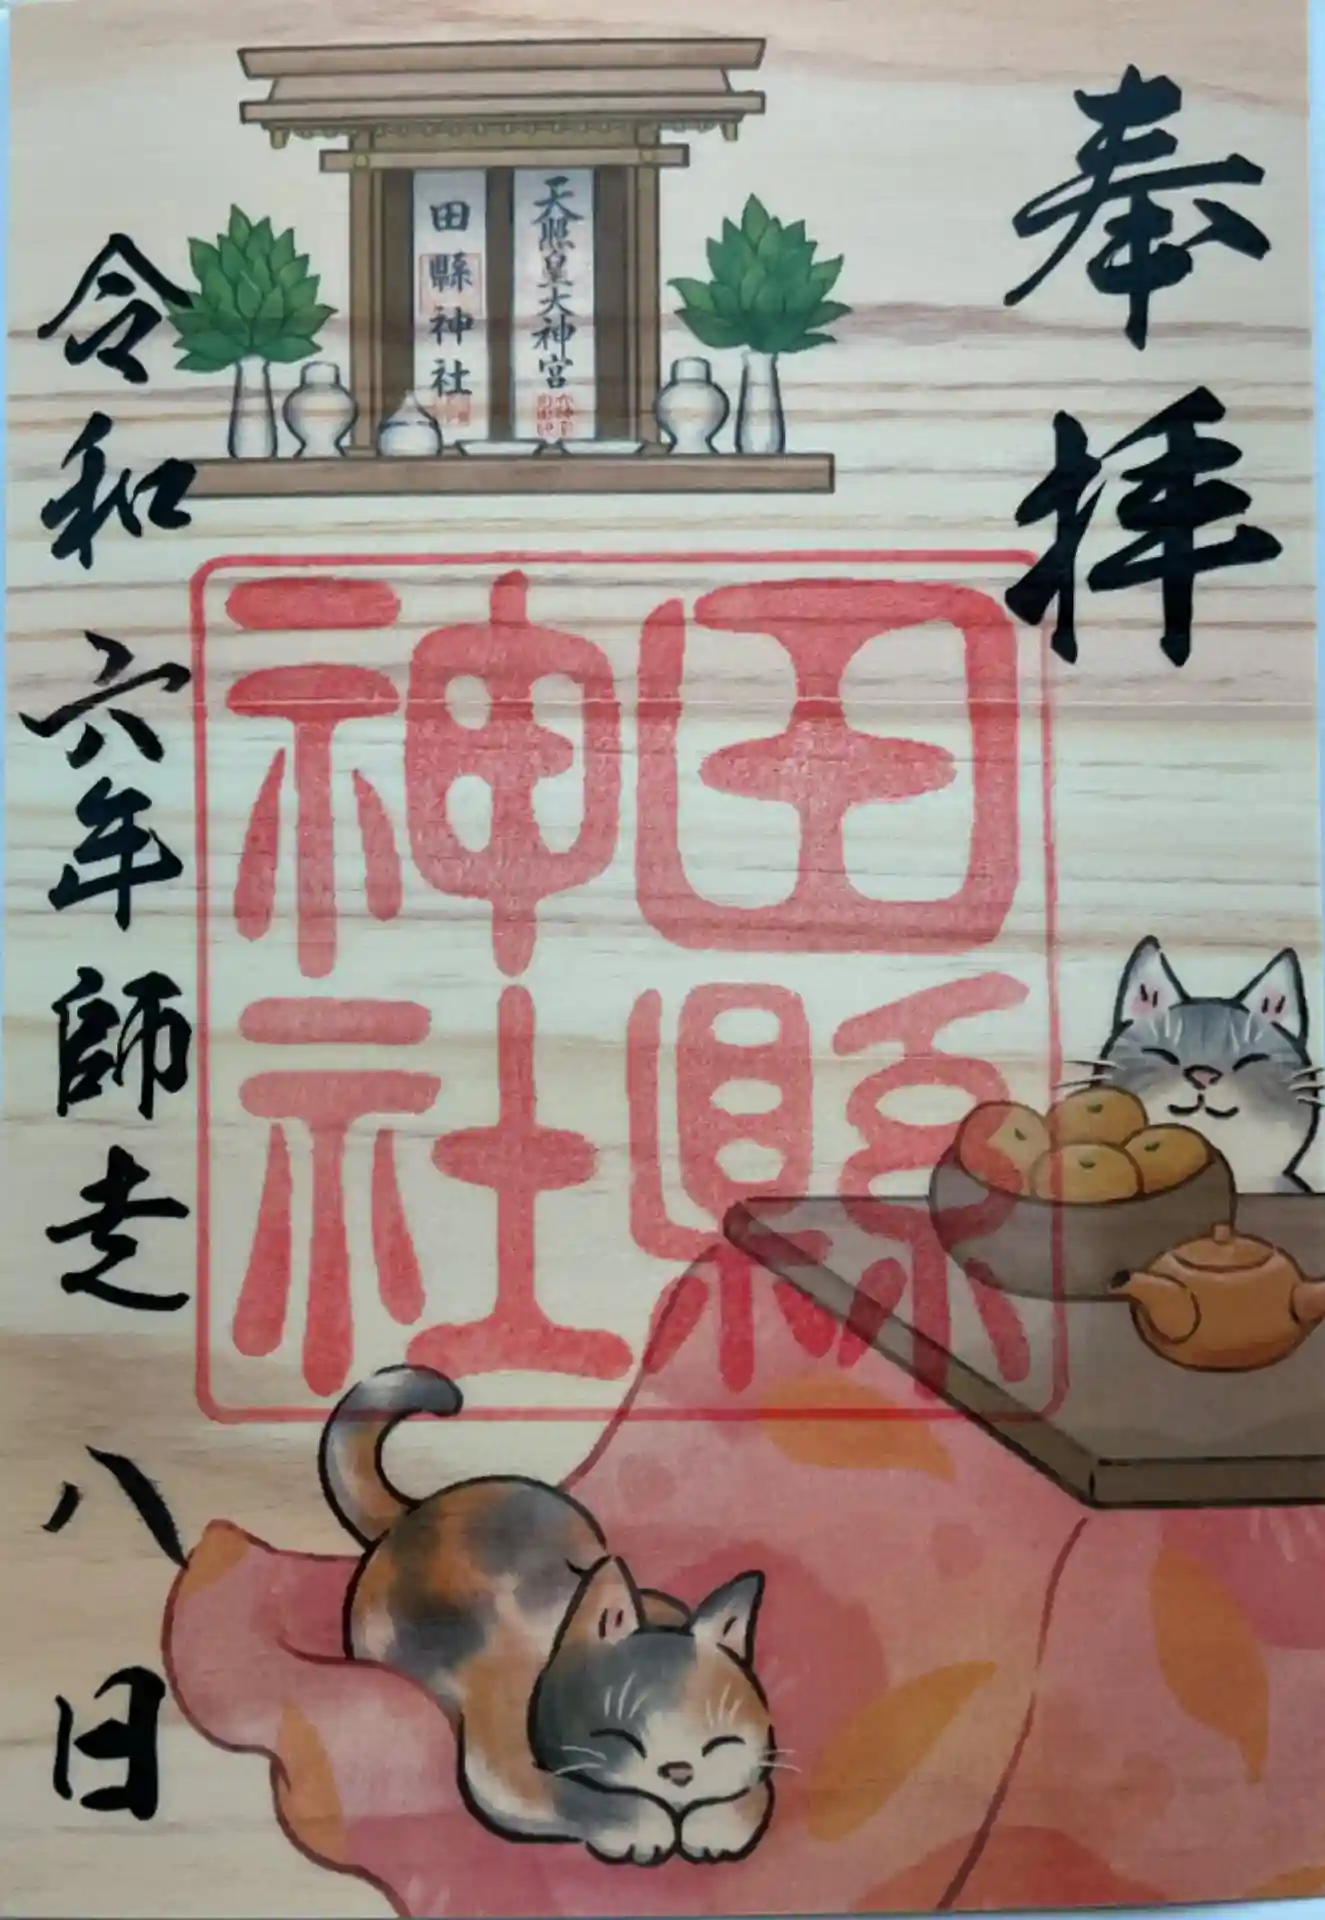 奉拝
天照皇大神宮
田縣神社
田縣
神社
令和六年師走八日